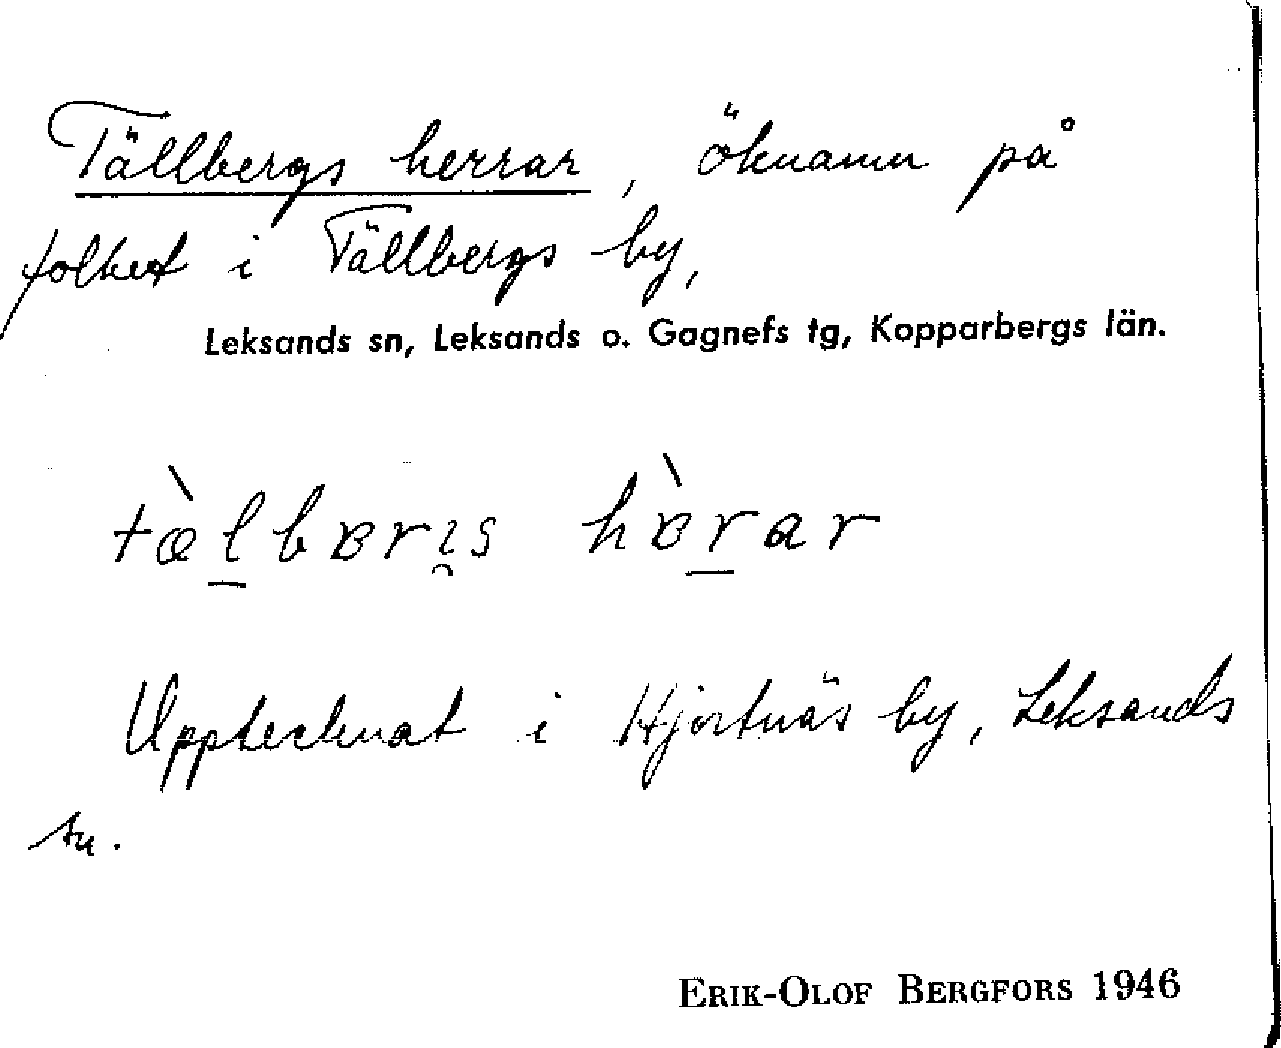 Tällbergs herrar, öknamn på
folket i Tällbergs by,
Leksands sn, Leksands o. Gagnefs tg, Kopparbergs län.
tæ̀l̲bɐrı̯s hɐ̀r̲ar
Upptecknat i Hjortnäs by, Leksands
sn.
ERIK-OLOF BERGFORS 1946